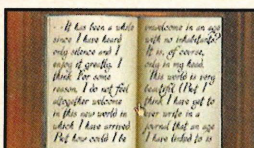 It has been a while
since I have heard
only silence and I
enjoy it greatly. I
think. For some
reason, I do not feel
altogether welcome
in this new world in
which I have arrived
But how could I be
unwelcome in an age
with no inhabitants?
It is, of course,
only in my head.
This world is very
beautiful (But I
think I have yet to
ever write in a
journal that an age
I have linked to is